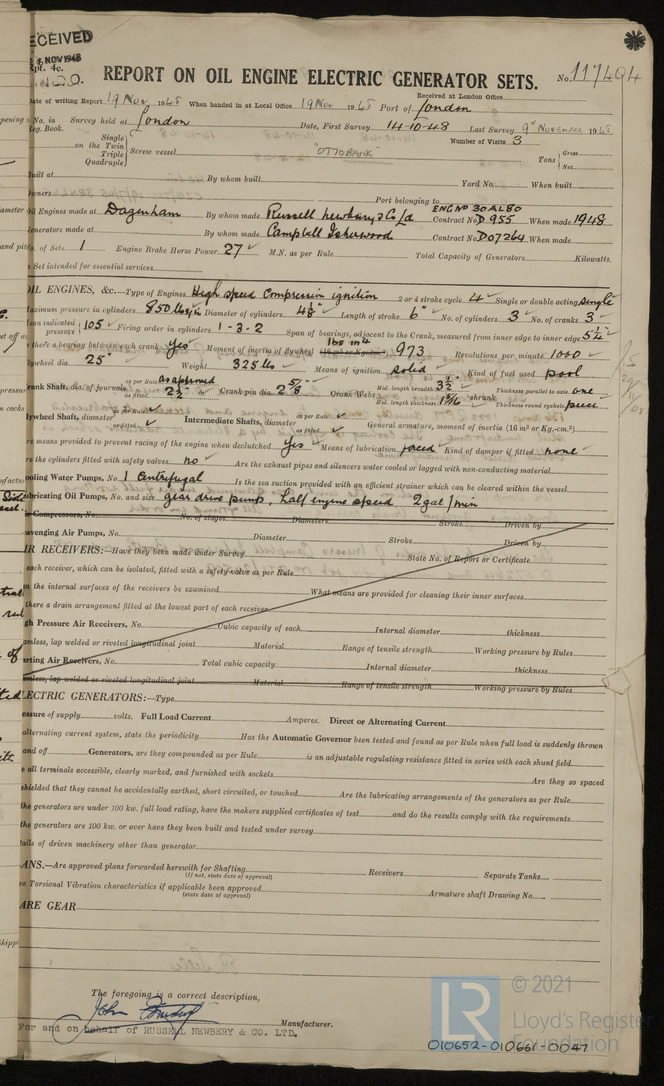 ECEIVED
NOV 1948
Rpt. 4c.
REPORT ON OIL ENGINE ELECTRIC GENERATOR SETS.
No. 117404
Received at London Office
Date of writing Report 19 Nov 1948 When handed in at Local Office 19 Nov 1948 Port of London
No. in Survey held at London Date, First Survey 14-10-48 Last Survey 9th November 1948
Reg. Book.
Number of Visits 3
Single
on the Twin
Triple
Quadruple
Screw vessel
"OTTOBANK"
Tons Gross
Net
uilt at By whom built Yard No. When built
wners Port belonging to
Oil Engines made at Dagenham By whom made Russell Newbery & Co Ld ENG Nº 30AL80 Contract No. D955 When made 1948
enerators made at By whom made Campbell Isherwood Contract No. D07264 When made
o. of Sets 1 Engine Brake Horse Power 27 M.N. as per Rule Total Capacity of Generators Kilowatts.
Set intended for essential services
OIL ENGINES, &c.—Type of Engines High speed compression ignition 2 or 4 stroke cycle 4 Single or double acting Single
aximum pressure in cylinders 850 lbs/in Diameter of cylinders Length of stroke 6" No. of cylinders 3 No. of cranks 3
ean indicated pressure 105 Firing order in cylinders 1-3-2 Span of bearings, adjacent to the Crank, measured from inner edge to inner edge 5¼"
there a bearing between each crank Yes Moment of inertia of flywheel 973 Revolutions per minute 1000
lywheel dia. 25" Weight 325 lbs Means of ignition solid Kind of fuel used pool
rank Shaft, dia. of journals as per Rule as approved as fitted Crank pin dia. 2⅝" Crank Webs Mid. length breadth 3½" Mid. length thickness shrunk Thickness parallel to axis one Thickness round eyehole piece
lywheel Shaft, diameter as per Rule as fitted Intermediate Shafts, diameter as per Rule as fitted General armature, moment of inertia (16 m² or Kg.-cm.²)
re means provided to prevent racing of the engine when declutched Yes Means of lubrication forced Kind of damper if fitted none
re the cylinders fitted with safety valves no Are the exhaust pipes and silencers water cooled or lagged with non-conducting material
ooling Water Pumps, No. 1 Centrifugal Is the sea suction provided with an efficient strainer which can be cleared within the vessel
ubricating Oil Pumps, No. and size gear drive pump. half engine speed 2 gal/min
Compressors, No. No. of stages Diameters Stroke Driven by
avenging Air Pumps, No. Diameter Stroke Driven by
IR RECEIVERS:—Have they been made under Survey State No. of Report or Certificate
each receiver, which can be isolated, fitted with a safety valve as per Rule
n the internal surfaces of the receivers be examined What means are provided for cleaning their inner surfaces
there a drain arrangement fitted at the lowest part of each receiver
gh Pressure Air Receivers, No. Cubic capacity of each Internal diameter thickness
amless, lap welded or riveted longitudinal joint Material Range of tensile strength Working pressure by Rules
arting Air Receivers, No. Total cubic capacity Internal diameter thickness
amless, lap welded or riveted longitudinal joint Material Range of tensile strength Working pressure by Rules
LECTRIC GENERATORS:—Type
essure of supply volts. Full Load Current Amperes. Direct or Alternating Current
alternating current system, state the periodicity Has the Automatic Governor been tested and found as per Rule when full load is suddenly thrown
and off Generators, are they compounded as per Rule is an adjustable regulating resistance fitted in series with each shunt field
e all terminals accessible, clearly marked, and furnished with sockets Are they so spaced
shielded that they cannot be accidentally earthed, short circuited, or touched Are the lubricating arrangements of the generators as per Rule
the generators are under 100 kw. full load rating, have the makers supplied certificates of test and do the results comply with the requirements
the generators are 100 kw. or over have they been built and tested under survey
tails of driven machinery other than generator
ANS.—Are approved plans forwarded herewith for Shafting Receivers Separate Tanks
(If not, state date of approval)
ve Torsional Vibration characteristics if applicable been approved Armature shaft Drawing No.
(state date of approval)
ARE GEAR
The foregoing is a correct description,
Manufacturer.
For and on behalf of RUSSELL NEWBERY & CO. LTD.
LR
© 2021
Lloyd's Register
Foundation
010652-010661-0047